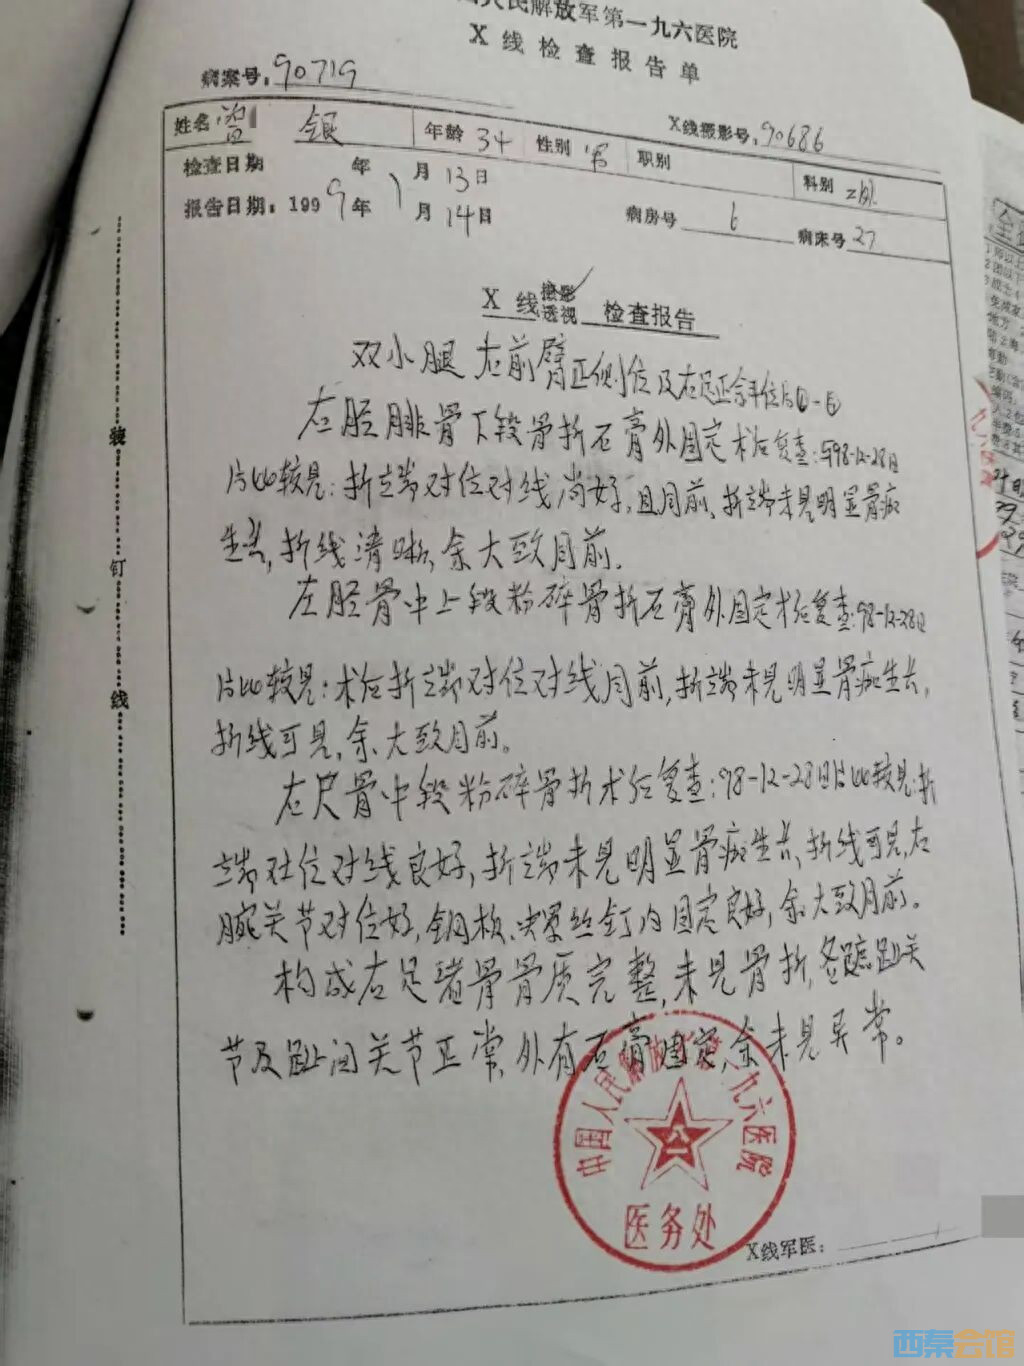 人民解放军第一九六医院
X线检查报告单
病案号:90719
姓名: 银 年龄 34 性别 男 职别 X线摄影号:90686
检查日期 年 1月13日 科别 二外
报告日期:1999年1月14日 病房号 6 病床号 27
X线摄影透视检查报告
双小腿 右前臂正侧位及右足正斜位片①-⑥
右胫腓骨下段骨折石膏外固定术后复查:与98-12-28日
片比较见:折端对位对线尚好,且同前、折端未见明显骨痂
生长,折线清晰,余大致同前。
左胫骨中上段粉碎骨折石膏外固定术后复查:98-12-28日
片比较见:术后折端对位对线同前,折端未见明显骨痂生长,
折线可见,余大致同前。
右尺骨中段粉碎骨折术后复查:98-12-28日片比较见:折
端对位对线良好,折端未见明显骨痂生长,折线可见,右
腕关节对位好,钢板、螺丝钉内固定良好,余大致同前。
构成右足诸骨骨质完整,未见骨折,各跖趾关
节及趾间关节正常,外有石膏固定,余未见异常。
中国人民解放军第一九六医院
医务处
X线军医:
装
订
线
西秦会馆